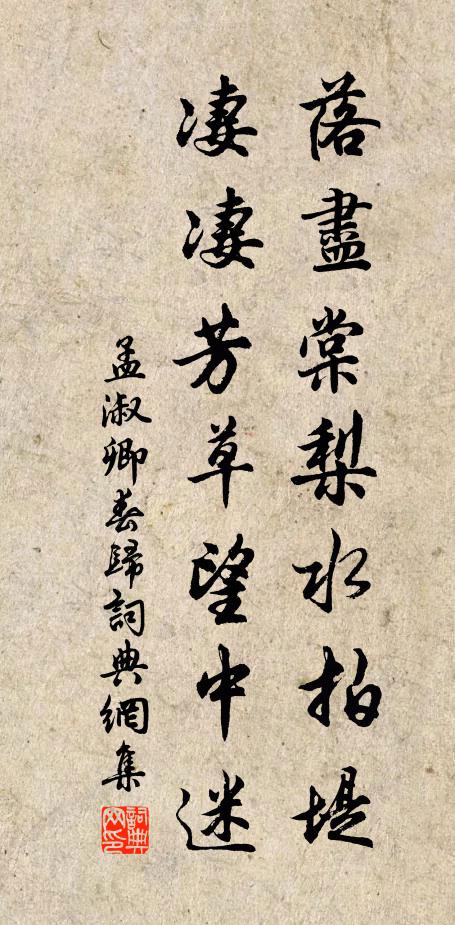 落盡棠梨水拍堤
凄凄芳草望中迷
孟淑卿春歸詞典網集
詞典网印